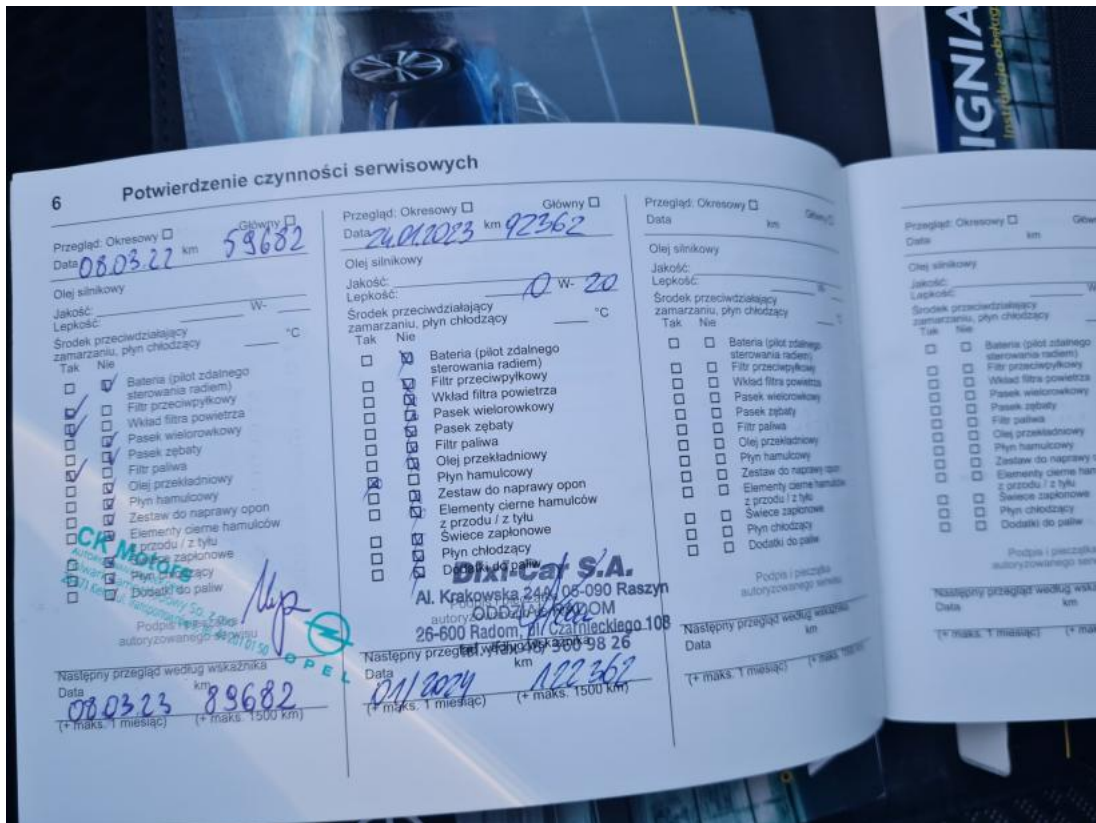 IGNIA
Instrukcja obsług
6 Potwierdzenie czynności serwisowych
Przegląd: Okresowy ☐ Główny ☐
Data 08.03.22 km 59682
Olej silnikowy
Jakość:
Lepkość: W-
Środek przeciwdziałający
zamarzaniu, płyn chłodzący °C
Tak Nie
Bateria (pilot zdalnego
sterowania radiem)
Filtr przeciwpyłkowy
Wkład filtra powietrza
Pasek wielorowkowy
Pasek zębaty
Filtr paliwa
Olej przekładniowy
Płyn hamulcowy
Zestaw do naprawy opon
Elementy cierne hamulców
z przodu / z tyłu
Świece zapłonowe
Płyn chłodzący
Dodatki do paliw
CK Motors
OPEL
Podpis i pieczątka
autoryzowanego serwisu
Następny przegląd według wskaźnika
Data km
08.03.23 89682
(+ maks. 1 miesiąc) (+ maks. 1500 km)
Przegląd: Okresowy ☐ Główny ☐
Data 24.01.2023 km 92362
Olej silnikowy
Jakość:
Lepkość: 0 W- 20
Środek przeciwdziałający
zamarzaniu, płyn chłodzący °C
Tak Nie
Bateria (pilot zdalnego
sterowania radiem)
Filtr przeciwpyłkowy
Wkład filtra powietrza
Pasek wielorowkowy
Pasek zębaty
Filtr paliwa
Olej przekładniowy
Płyn hamulcowy
Zestaw do naprawy opon
Elementy cierne hamulców
z przodu / z tyłu
Świece zapłonowe
Płyn chłodzący
Dodatki do paliw
Dixi-Car S.A.
Al. Krakowska 24A, 05-090 Raszyn
ODDZIAŁ RADOM
26-600 Radom, ul. Czarnieckiego 108
360 98 26
Następny przegląd według wskaźnika
Data km
01/2024 122362
(+ maks. 1 miesiąc) (+ maks. 1500 km)
Przegląd: Okresowy ☐ Główny ☐
Data km
Olej silnikowy
Jakość:
Lepkość: W-
Środek przeciwdziałający
zamarzaniu, płyn chłodzący °C
Tak Nie
Bateria (pilot zdalnego
sterowania radiem)
Filtr przeciwpyłkowy
Wkład filtra powietrza
Pasek wielorowkowy
Pasek zębaty
Filtr paliwa
Olej przekładniowy
Płyn hamulcowy
Zestaw do naprawy opon
Elementy cierne hamulców
z przodu / z tyłu
Świece zapłonowe
Płyn chłodzący
Dodatki do paliw
Podpis i pieczątka
autoryzowanego serwisu
Następny przegląd według wskaźnika
Data km
(+ maks. 1 miesiąc) (+ maks. 1500 km)
Przegląd: Okresowy ☐ Główn
Data km
Olej silnikowy
Jakość:
Lepkość: W
Środek przeciwdziałający
zamarzaniu, płyn chłodzący
Tak Nie
Bateria (pilot zdalnego
sterowania radiem)
Filtr przeciwpyłkowy
Wkład filtra powietrza
Pasek wielorowkowy
Pasek zębaty
Filtr paliwa
Olej przekładniowy
Płyn hamulcowy
Zestaw do naprawy o
Elementy cierne ham
z przodu / z tyłu
Świece zapłonowe
Płyn chłodzący
Dodatki do paliw
Podpis i pieczątka
autoryzowanego serwi
Następny przegląd według wskaźnika
Data km
(+ maks. 1 miesiąc) (+ ma